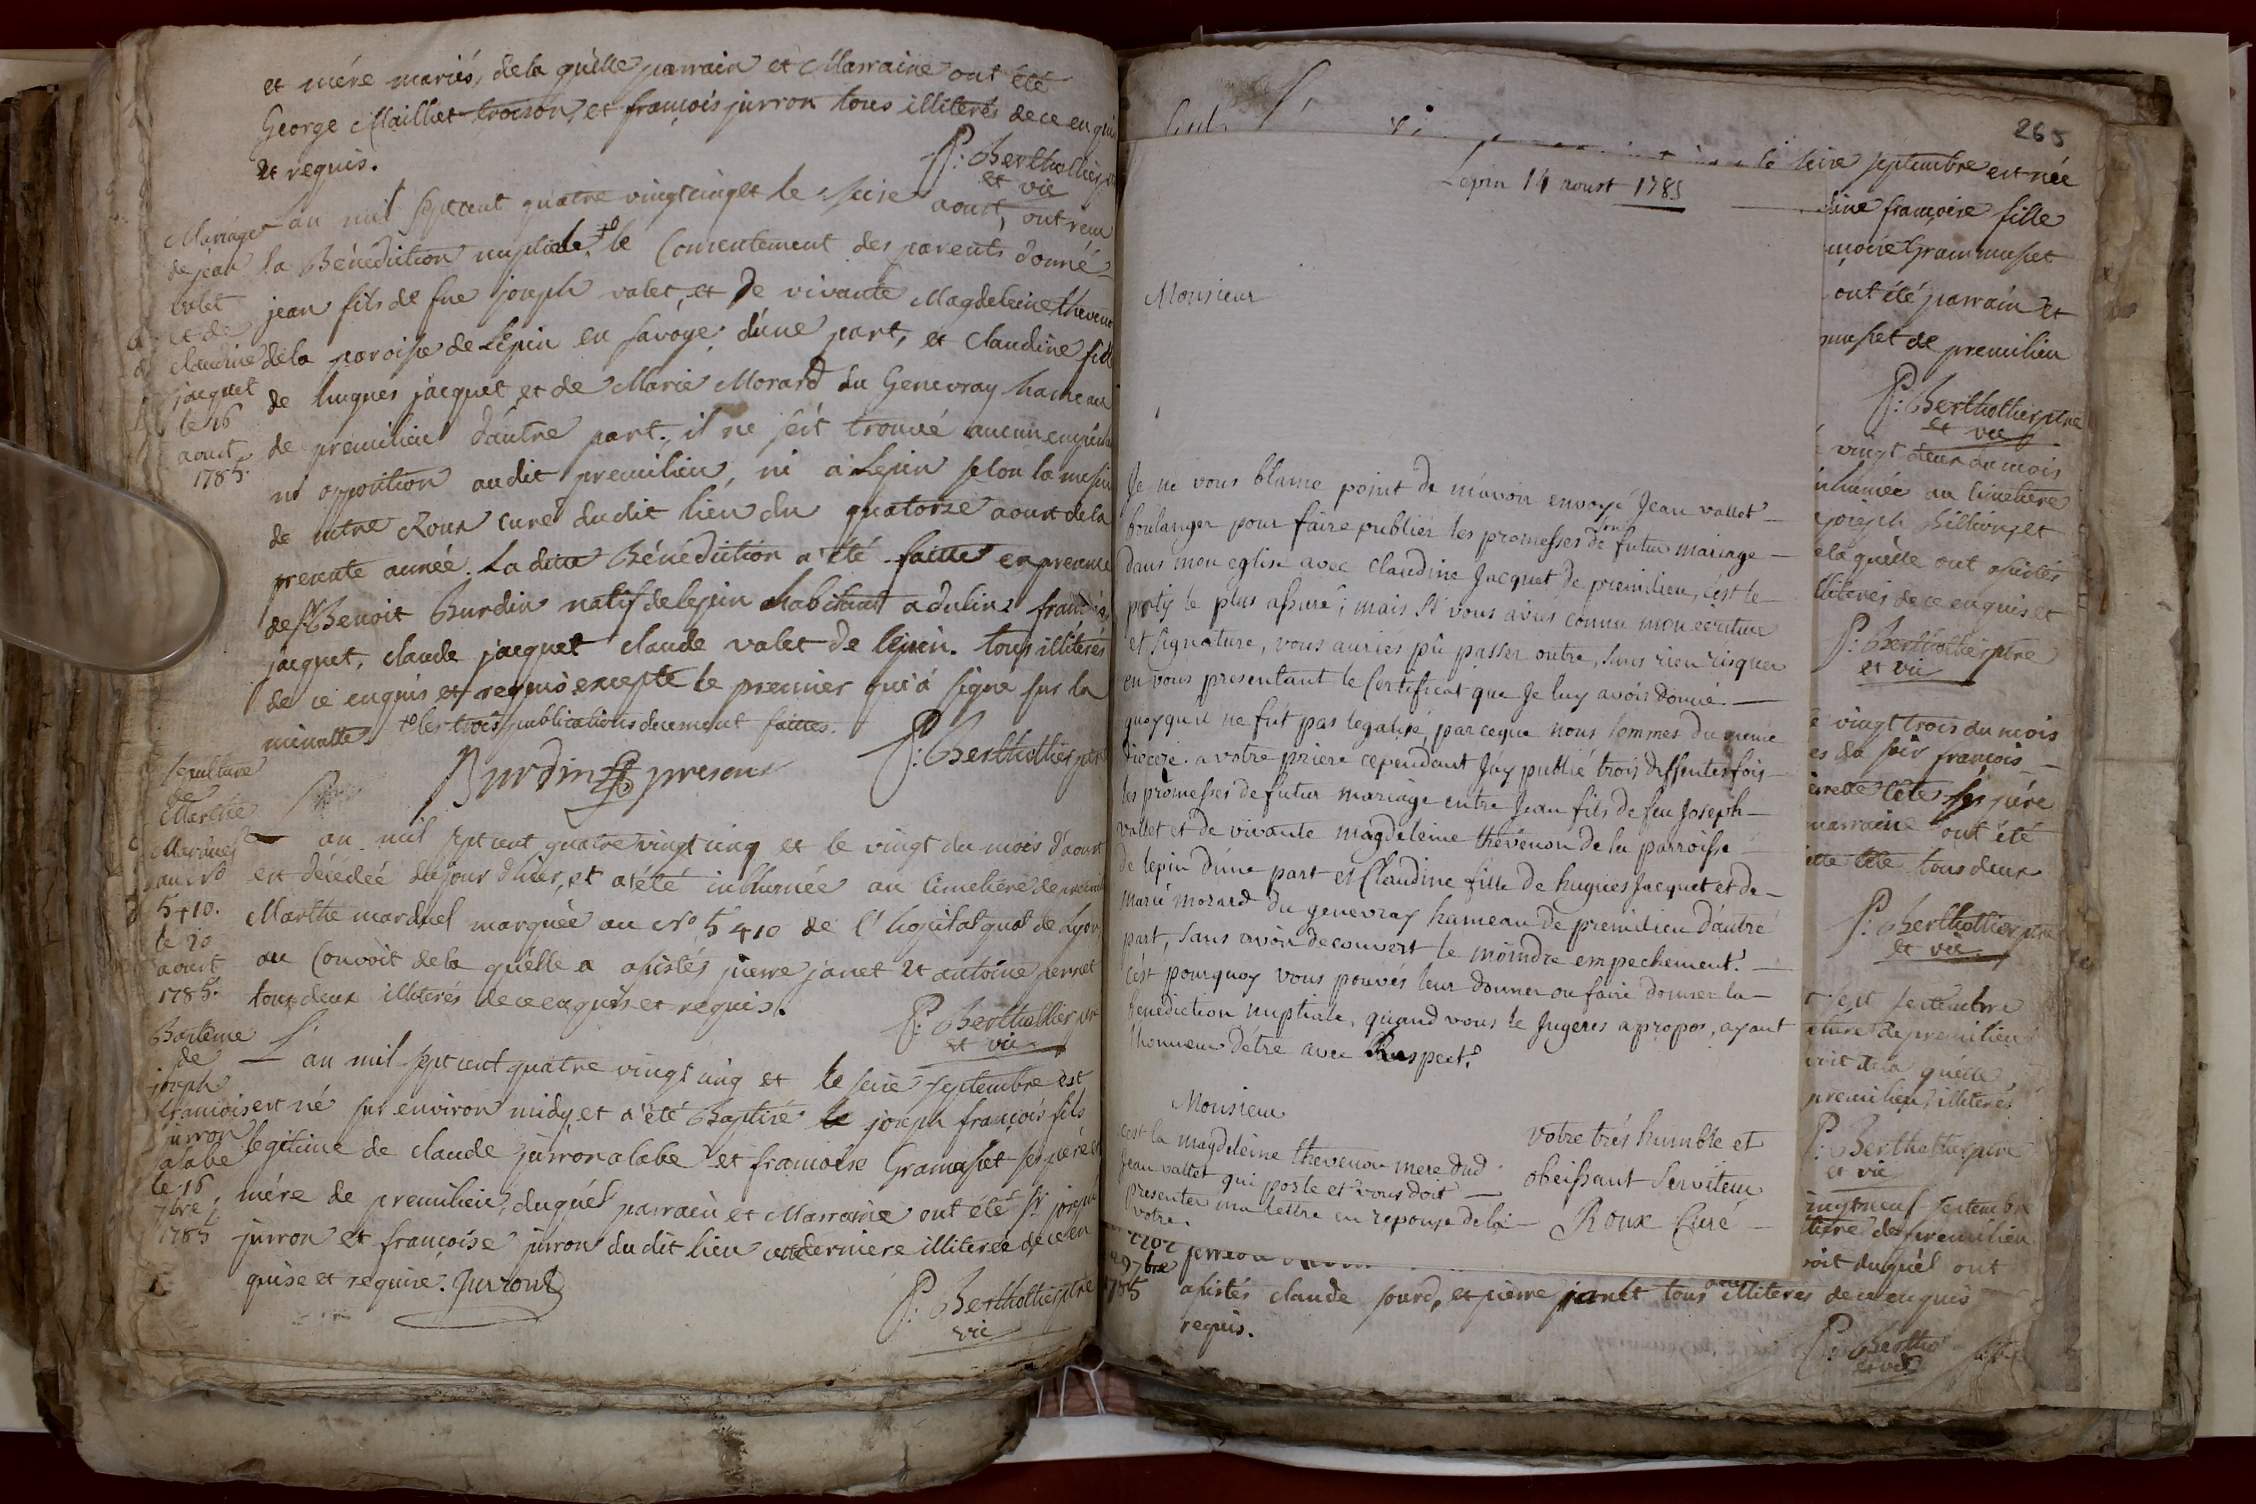 et mére mariés, de la quélle parrain et Marraine ont été
George Maillet troison, et françois jurron tous illiterés de ce enquis
et requis.
P: Berthollier ptre
et vic
Mariage
de jean
valet
et de
claudine
jacquet
le 16
aoust
1785.
an mil sept cent quatre vingt cinq et le seize aoust, ont recu
la Bénédiction nuptiale, +o le Consentement des parents donné
jean fils de fue joseph valet, et de vivante Magdeleine thevenon
de la paroisse de Lépin en savoye, d'une part, et claudine fille
de hugues jacquet et de Marie Morard du Genevray hameau
de premilieu d'autre part. il ne s'eit trouvé aucun empéche
ni opposition au dit premilieu, ni à Lépin selon la missive
de mtre Roux curé du dit lieu du quatorze aoust de la
presente année. La ditte Bénédiction a été faitte en presence
de Sr Benoit Burdin natif de lepin habitant a dulin, françois
jacquet, claude jacquet claude valet de lepin. tous illiterés
de ce enquis et requis excepté le premier qui a signé sur la
minutte. +o les trois publications duement faittes.
Burdin present
P: Berthollier ptre
sepulture
de
Marthe
Marduel
au No
5410.
le 20
aoust
1785.
an mil sept cent quatre vingt cinq et le vingt du mois d'aoust
est décédée du jour d'hier, et a été inhumée au Cimetiere de premilieu
Marthe marduel marquée au No 5410 de l'hopital gnal de Lyon
au Convoit de la quélle a assistés pierre janet et antoine perret
tous deux illiterés de ce enquis et requis.
P: Berthollier ptre
et vic
Baptéme
de
joseph
françois
jurron
alabe
le 16
7bre
1785
L'an mil sept cent quatre vingt cinq et le seize septembre est
est né sur environ midy, et a été Baptisé le joseph françois fils
legitime de claude jurron alabe et françoise Gramusset ses pére et
mére de premilieu, duquél parrain et Marraine ont été Sr joseph
jurron et françoise jurron du dit lieu cette derniere illiterée de ce en
quise et requise. Jurron
P: Berthollier ptre
vic
265
Lepin 14 aoust 1785
Monsieur
Je ne vous blame point de m'avoir envoyé Jean vallet
boulanger pour faire publier les promesses de son futur mariage
dans mon eglise avec claudine Jacquet de premilieu, c'est le
party le plus assuré; mais si vous aviés connu mon ecriture
et signature, vous auriés pû passer outre, sans rien risquer
en vous presentant le Certificat que Je luy avois donné.
quoyqu'il ne fut pas legalisé, parceque nous sommes du meme
diocese. a votre priere cependant Jay publié trois differentes fois
les promesses de futur mariage entre Jean fils de feu Joseph
vallet et de vivante magdeleine thévenon de la parroisse
de lepin d'une part et Claudine fille de hugues Jacquet et de
marie morard du genevray hameau de premilieu d'autre
part, sans avoir decouvert le moindre empechement.
c'est pourquoy vous pouvés leur donner ou faire donner la
benediction nuptiale, quand vous le Jugeres apropos, ayant
l'honneur d'étre avec Respect.
Monsieur
votre trés humble et
obeissant serviteur
Roux Curé
c'est la magdeleine thevenon mere dud
Jean vallet qui porte et vous doit
presenter ma lettre en reponse de la
votre.
le seize septembre est née
françoise fille
Grammusset
ont été parrain et
musset de premilieu
P: Berthollier ptre
et vic
vingt deux du mois
inhumée au Cimetiere
joseph Billion, et
la quélle ont assistés
illiterés de ce enquis et
P: Berthollier ptre
et vic
vingt trois du mois
françois
tête ses pére
marraine ont été
tête tous deux
P: Berthollier ptre
et vic
sept septembre
de premilieu
de la quélle
premilieu, illiterés
P: Berthollier ptre
et vic
vingt neuf septembre
de premilieu
duquél ont
7bre
1785
assistés claude jourd, et pierre janet tous deux illiterés de ce enquis
requis.
P: Berthol
et vic